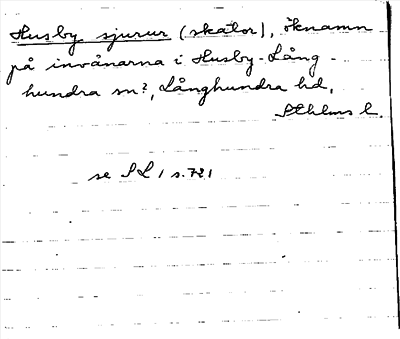 Husby sjurur (skator), öknamn
på invånarna i Husby-Lång-
hundra sn?, Långhundra hd,
Sthlms l.
se SL 1 s.721